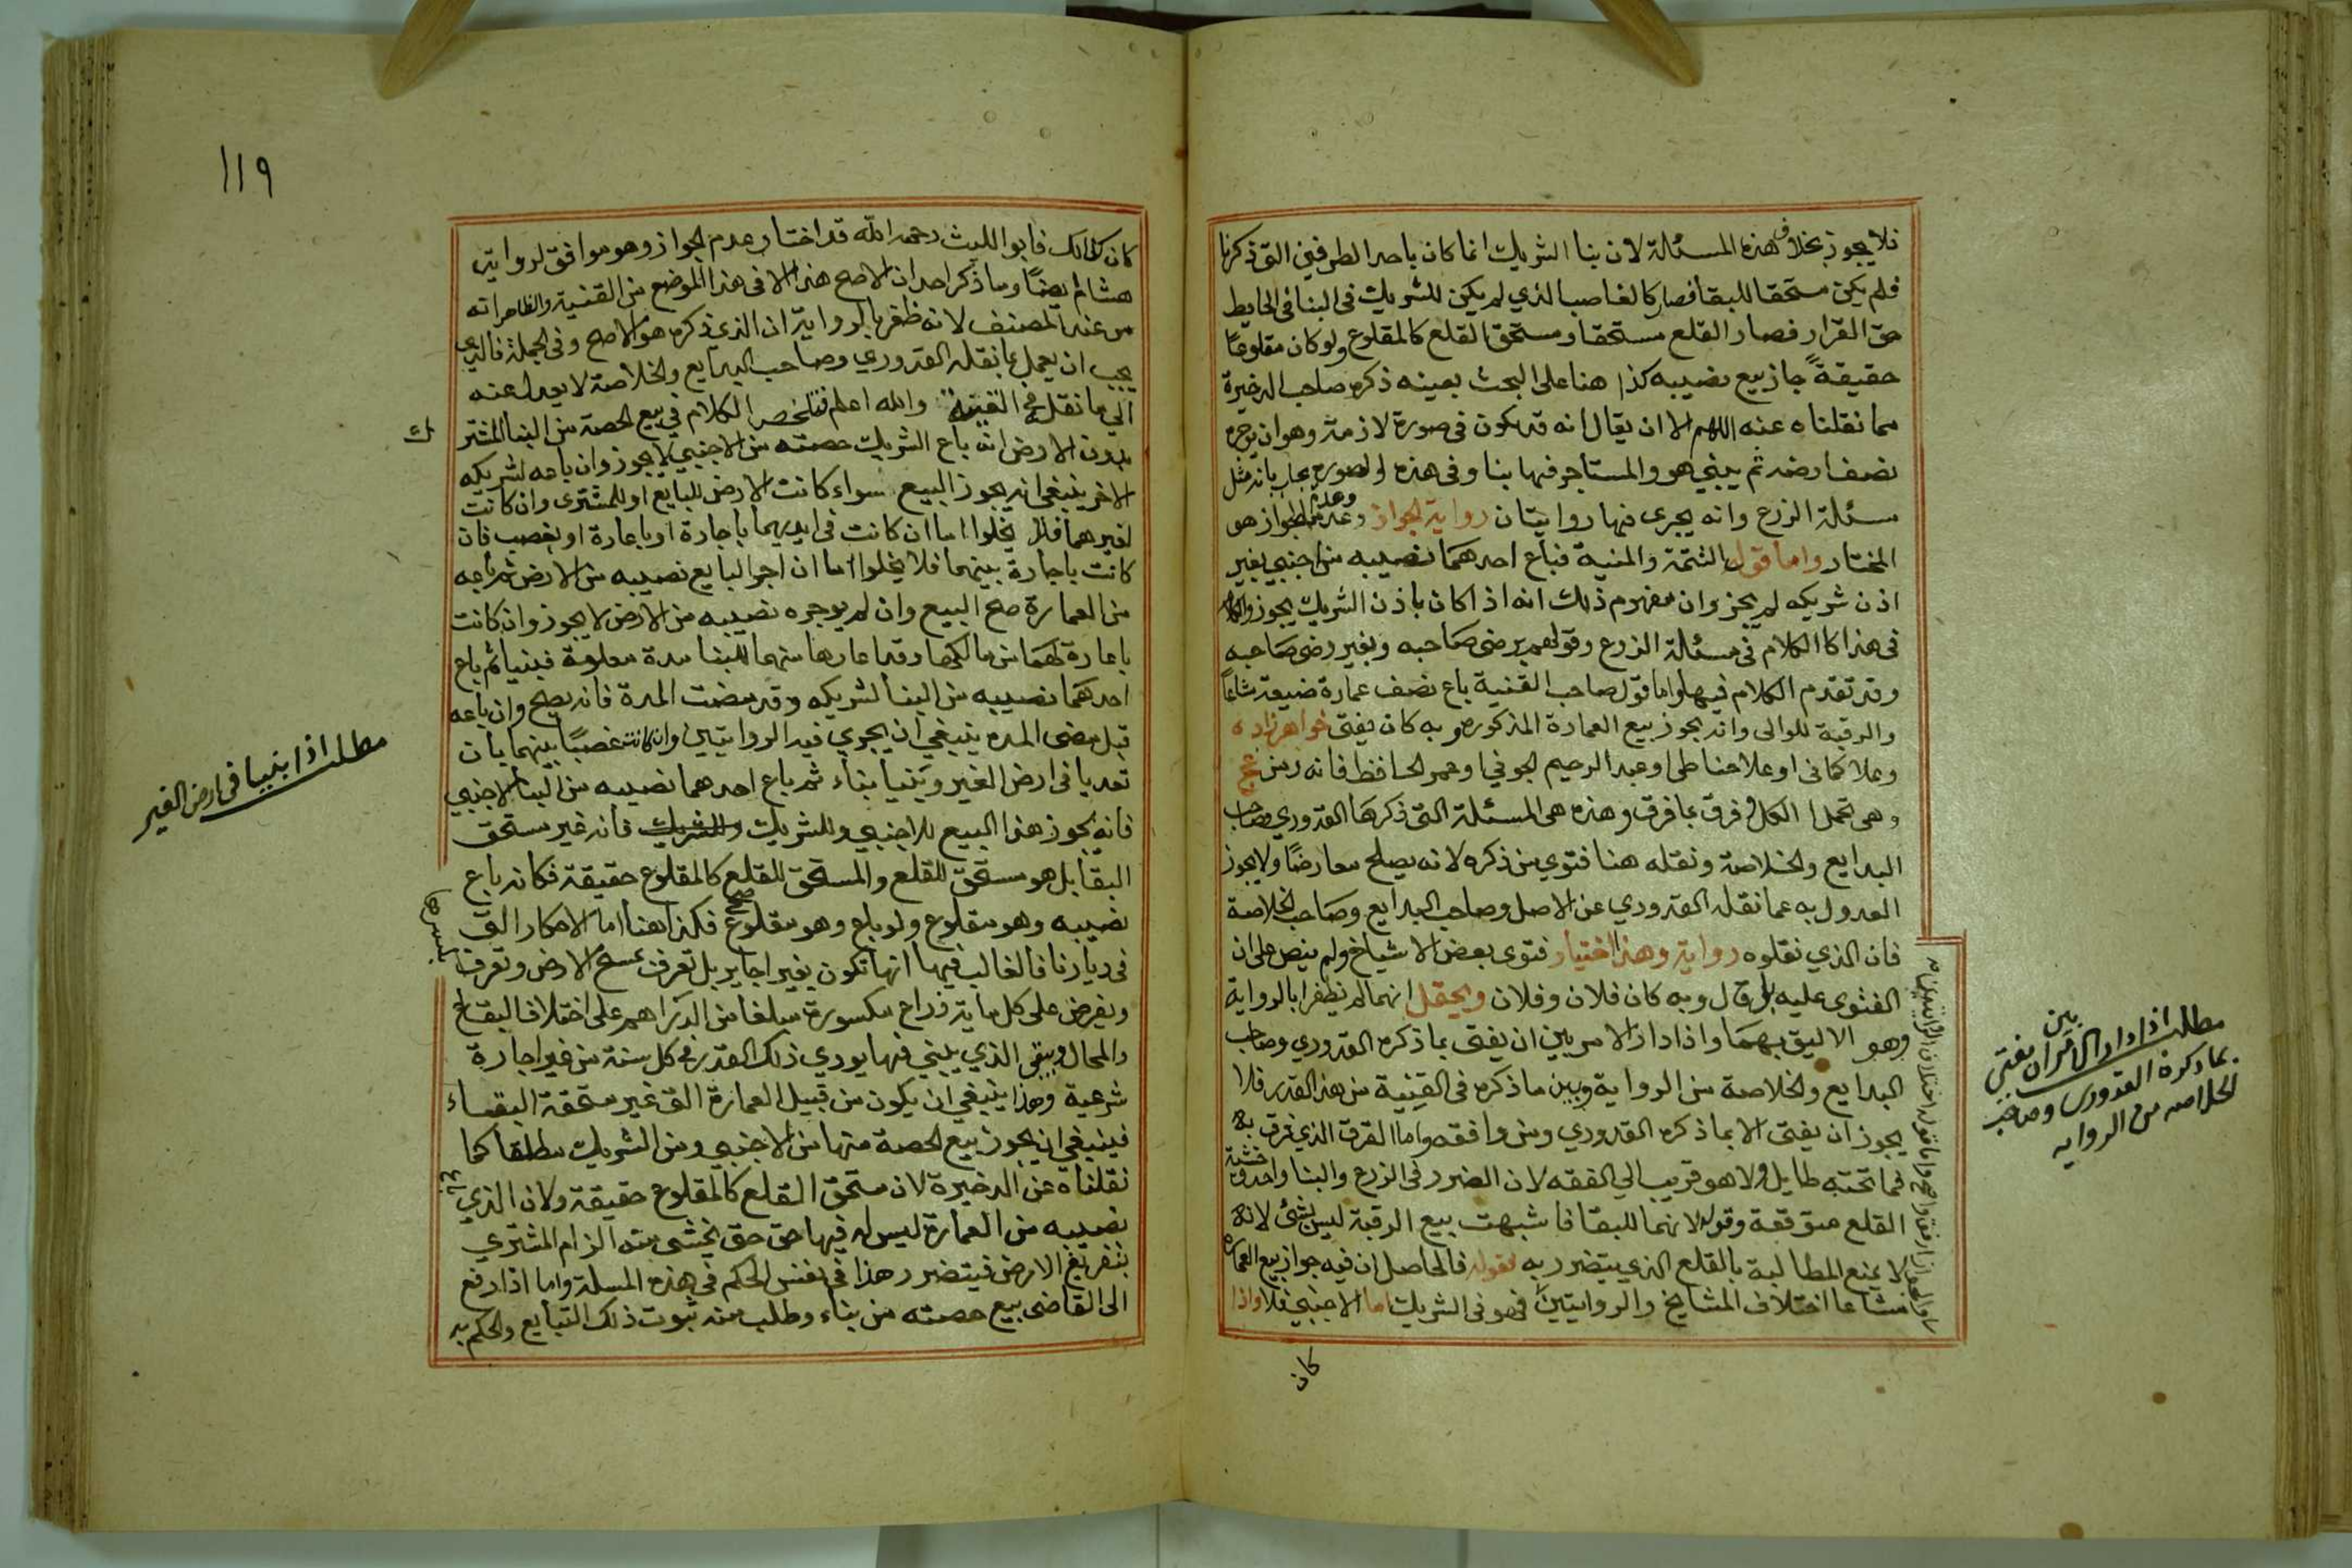 فلا يجوز بخلاف هذه المسئلة لان بنا الشريك انما كان باحد الطرفين التي ذكرنا
فلم يكن مستحقا للبقا فصار كالغاصب الذي لم يكن للشريك في البنا في الحايط
حق القرار فصار القلع مستحقا ومستحق القلع كالمقلوع ولو كان مقلوعا
حقيقةً جاز بيع نصيبه كذا هنا على البحث بعينه ذكره صاحب الذخيرة
مما نقلناه عنه اللهم الا ان يقال انه قد يكون في صورة لازمة وهو ان يوجره
نصف ارضه ثم يبني هو والمستاجر فيها بنا وفي هذه الصورة يجاب بانه مثل
مسئلة الزرع وانه يجرى فيها روايتان رواية الجواز وعدم الجواز هو
المختار واما قول التتمة والمنية فباع احدهما نصيبه من اجنبي بغير
اذن شريكه لم يجز وان مفهوم ذلك انه اذا كان باذن الشريك يجوز والكلام
في هذا كا الكلام في مسئلة الزرع وقولهم برضى صاحبه وبغير رضى صاحبه
وقد تقدم الكلام فيها واما قول صاحب القنية باع نصف عمارة ضيعة شاعا
والرقبة للوالى وانه يجوز بيع العمارة المذكورة وبه كان يفتى خواهرزاده
وعلا حمامى او علا حناطى او عبد الرحيم الجوفي او عمر الحافظ فانه رمز عج
وهى تحمل الكل وفرق بما فرق وهذه هى المسئلة التى ذكرها القدوري وصاحب
البدايع والخلاصة ونقله هنا فتوي من ذكره لانه يصلح معارضًا ولا يجوز
العدول به عما نقله القدوري عن الاصل وصاحب البدايع وصاحب الخلاصة
فان الذي نقلوه رواية وهذا اختيار فتوى بعض الاشياخ ولم ينص على ان
الفتوى عليه بل قال وبه كان فلان وفلان ويحتمل انهما لم يظفرا بالرواية
وهو الاليق بهما واذا دار الامر بين ان يفتى بما ذكره القدوري وصاحب
البدايع والخلاصة من الرواية وبين ما ذكره في القينية من هذا القدر فلا
يجوز ان يفتى الا بما ذكره القدوري ومن وافقه واما الفرق الذي فرق به
فما تحته طايل ولا هو قريب الي الفقه لان الضرر في الزرع والبنا واحد وخشية
القلع متوقعة وقوله لانهما للبقا فاشبهت بيع الرقبة ليس بشئ لانه
لا يمنع المطالبة بالقلع الذي يتضرر به بقوله فالحاصل ان فيه جواز بيع العمارة
مشاعا اختلاف المشايخ والروايتين فهو في الشريك اما الاجنبي فلا واذا
كان
مطلب اذا دار الامر بين ان يفتى
بما ذكره القدوري وصاحب
الخلاصه من الروايه
١١٩
كان كذالك فابوا الليث رحمه الله قد اختار عدم الجواز وهو موافق لرواية
هشام ايضًا وما ذكر احد ان الاصح هذا الا في هذا الموضع من القنية والظاهر انه
من عند المصنف لانه ظفر بالرواية ان الذي ذكره هو الاصح وفي الجملة فالذي
يجب ان يعمل بما نقله القدوري وصاحب البدايع والخلاصة لا يعدل عنه
الي ما نقله في القنية والله اعلم فتلخص الكلام في بيع الحصة من البنا المشتر
ك
بدون الارض انه باع الشريك حصته من الاجنبي لا يجوز وان باعه لشريكه
الاخر ينبغي انه يجوز البيع سواء كانت الارض للبايع او للمشترى وان كانت
لغيرهما فلا يخلوا اما ان كانت في ايديهما باجارة او باعارة او بغصب فان
كانت باجارة بينهما فلا يخلوا اما ان اجر البايع نصيبه من الارض ثم باعه
من العمارة صح البيع وان لم يوجره نصيبه من الارض لا يجوز وان كانت
باعارة لهما من مالكها وقد اعارها منهما للبنا مدة معلومة فبنيا ثم باع
احدهما نصيبه من البنا لشريكه وقد مضت المدة فانه يصح وان باعه
قبل مضى المده ينبغي ان يجري فيه الروايتين وان كانت غصبًا بينهما بان
تعديا في ارض الغير وبنيا بناء ثم باع احدهما نصيبه من البنا لاجنبي
فانه يجوز هذا البيع للاجنبي وللشريك والشريك فانه غير مستحق
البقا بل هو مستحق للقلع والمستحق للقلع كالمقلوع حقيقة فكانه باع
نصيبه وهو مقلوع ولو باع وهو مقلوع صح فكذا هنا اما الاحكار التي
في ديارنا فالغالب فيها انها تكون بغير اجاير بل تعرف بمسح الارض وتعرف
ويفرض على كل ماية ذراع مكسورة مبلغا من الدراهم على اختلاف البقاع
والمحال ويبقى الذي يبني فيها يودي ذلك القدر في كل سنة من غير اجارة
شرعية وهذا ينبغي ان يكون من قبيل العمارة التى غير مستحقة البقاء
فينبغي ان يجوز بيع الحصة منها من الاجنبي ومن الشريك مطلقا كما
نقلناه عن الذخيرة لان مستحق القلع كالمقلوع حقيقة ولان الذي باع
نصيبه من العمارة ليس له فيها حق حتى يخشى منه الزام المشتري
بتفريغ الارض فيتضرر هذا في نفس الحكم في هذه المسلة واما اذا رفع
الى القاضى بيع حصته من بناء وطلب منه ثبوت ذلك التبايع والحكم به
مطلب اذا بنيا في ارض الغير